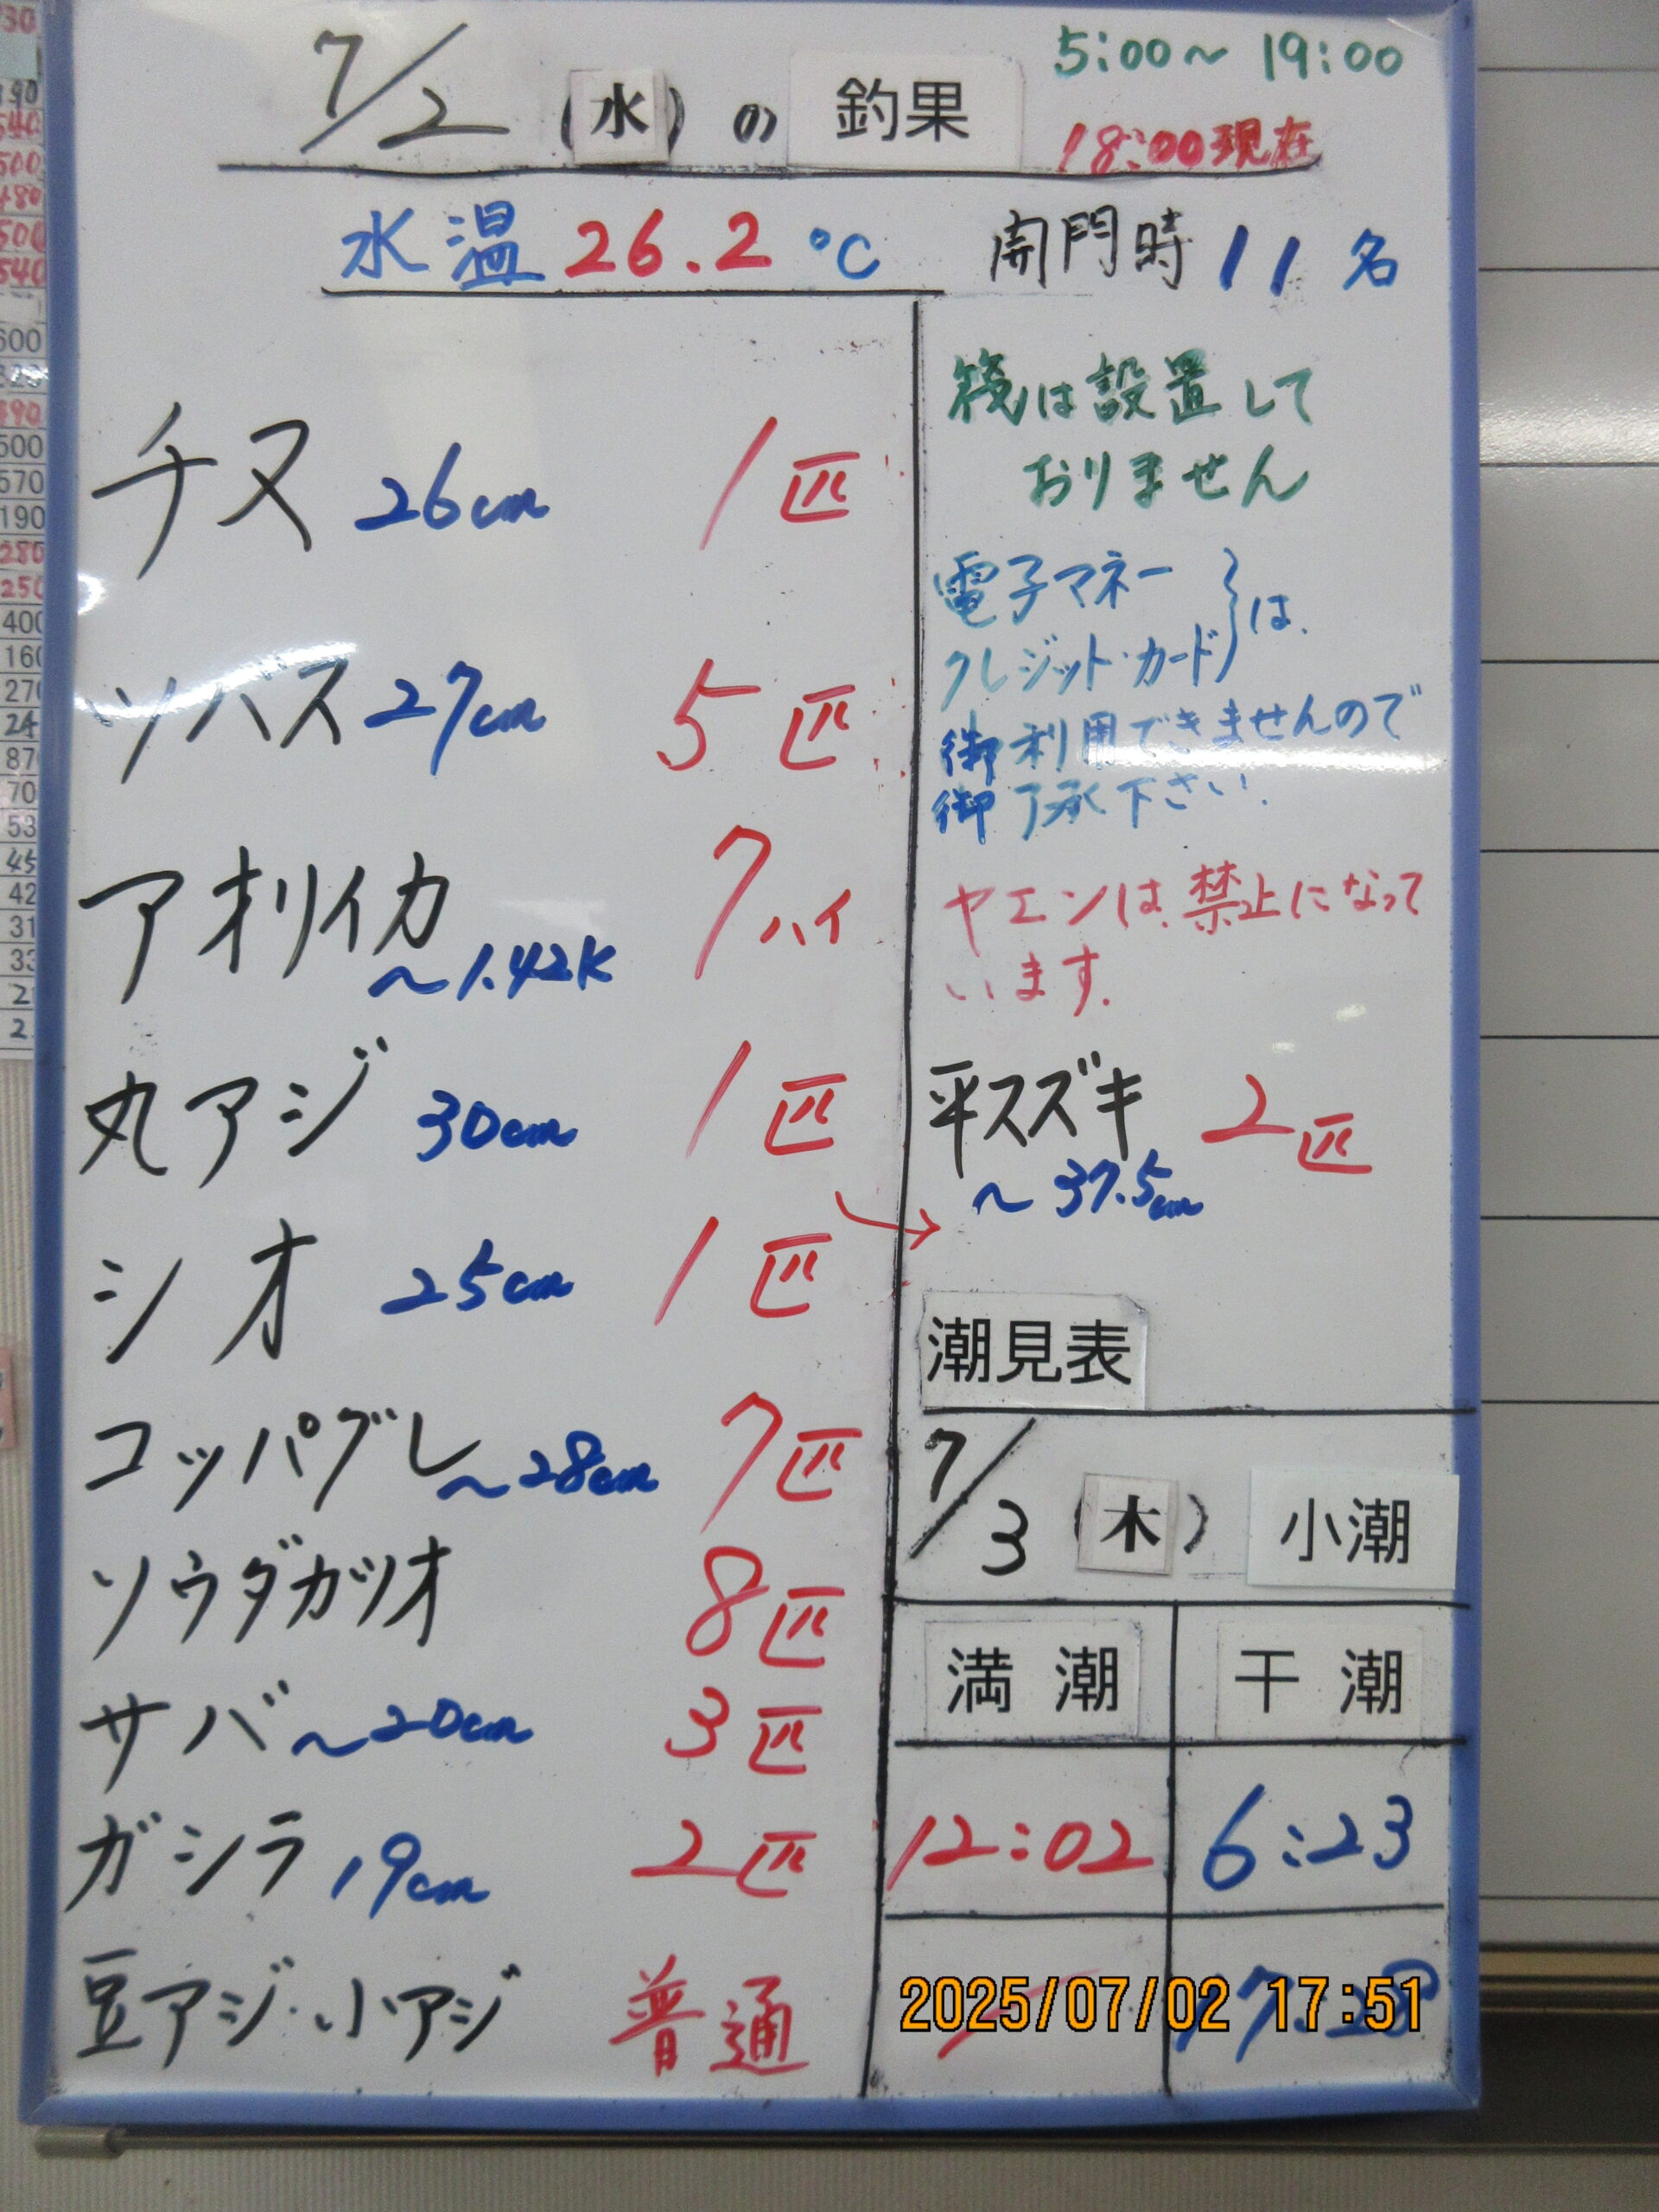 7/2 (水) の 釣果
5:00～19:00
18:00現在
水温 26.2 ℃
開門時 11 名
チヌ 26cm 1匹
ツバス 27cm 5匹
アオリイカ ～1.42K 7ハイ
丸アジ 30cm 1匹
シオ 25cm 1匹
コッパグレ ～28cm 7匹
ソウダガツオ 8匹
サバ ～20cm 3匹
ガシラ 19cm 2匹
豆アジ・小アジ 普通
筏は設置して
おりません
電子マネー
クレジット・カード }は、
御利用できませんので
御了承下さい.
ヤエンは、禁止になって
います.
平スズキ 2匹
～37.5cm
潮見表
7/3 (木) 小潮
満潮 干潮
12:02 6:23
2025/07/02 17:51